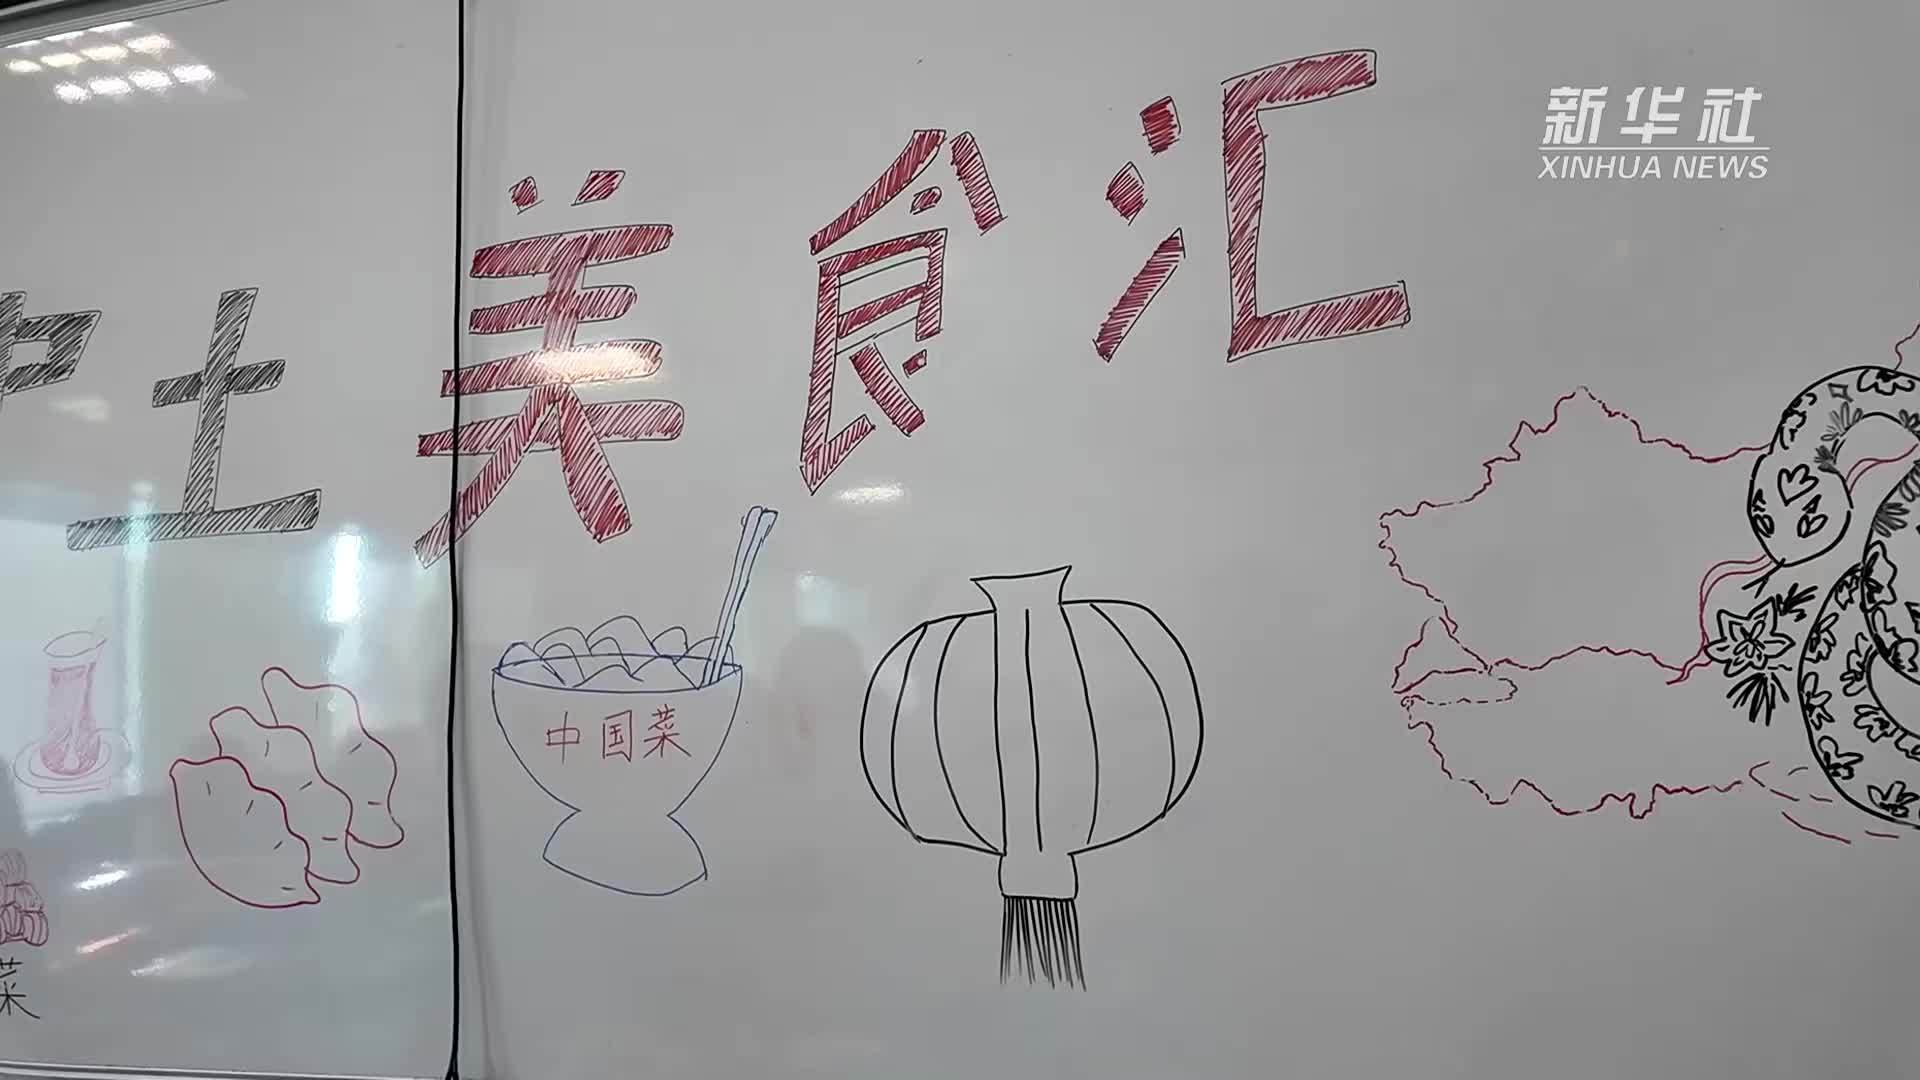 新华社
XINHUA NEWS
中土美食汇
中国菜
菜